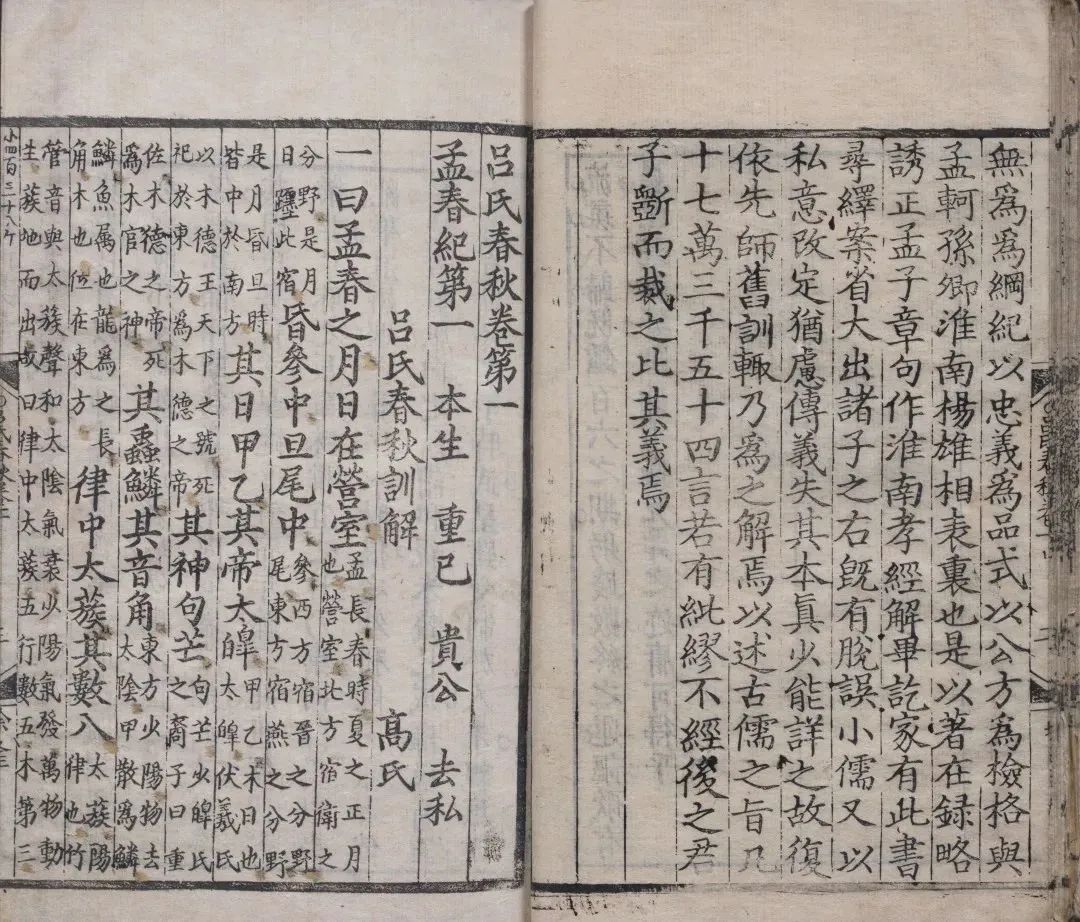 無爲爲綱紀以忠義爲品式以公方爲檢格與
孟軻孫卿淮南楊雄相表裏也是以著在録略
誘正孟子章句作淮南孝經解畢訖家有此書
尋繹案省大出諸子之右旣有脫誤小儒又以
私意改定猶慮傳義失其本眞少能詳之故復
依先師舊訓輙乃爲之解焉以述古儒之旨凡
十七萬三千五十四言若有紕繆不經後之君
子斲而裁之比其義焉
呂氏春秋卷第一
孟春紀第一 本生 重已 貴公 去私
呂氏春秋訓解 高氏
一曰孟春之月日在營室孟長春時夏之正月
也營室北方宿衛之
分野是月
日躔此宿昏參中旦尾中參西方宿晉之分野
尾東方宿燕之分野
是月昏旦時
皆中於南方其日甲乙其帝大皥甲乙木日也
太皥伏羲氏
以木德王天下之號死
祀於東方爲木德之帝其神句芒句芒少皥氏
之裔子曰重
佐木德之帝死
爲木官之神其蟲鱗其音角東方少陽物去
太陰甲散爲鱗
鱗魚属也龍爲之長
角木也位在東方律中太蔟其數八太蔟陽
律也竹
管音與太蔟聲和太陰氣衰少陽氣發萬物動
生蔟地而出故曰律中太蔟五行數五木第三